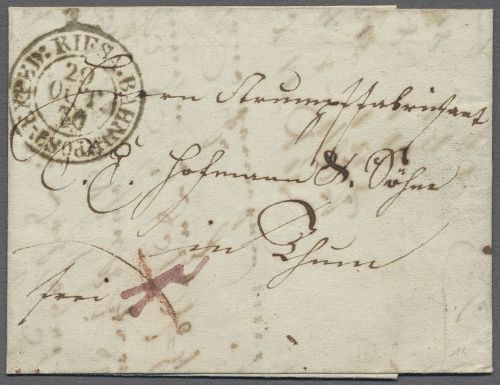 POST-EXPED: RIESA. BAHNH:
29
OCT
Herrn Strumpffabrikant
C. C. Hofmann & Söhne
in Thum
frei